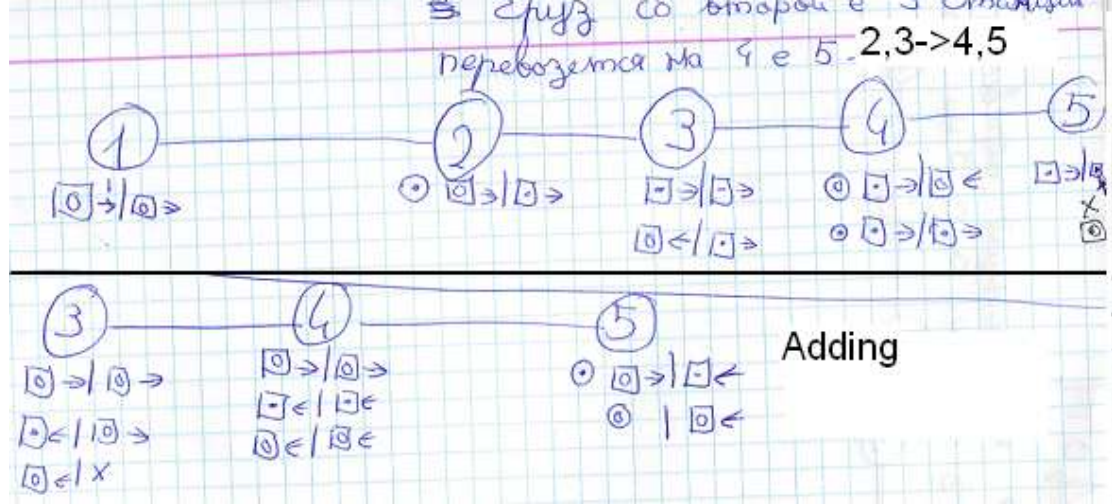 груз со второй е 3 станции
перевозется на 4 е 5. 2,3->4,5
1 2 3 4 5
3 4 5
Adding